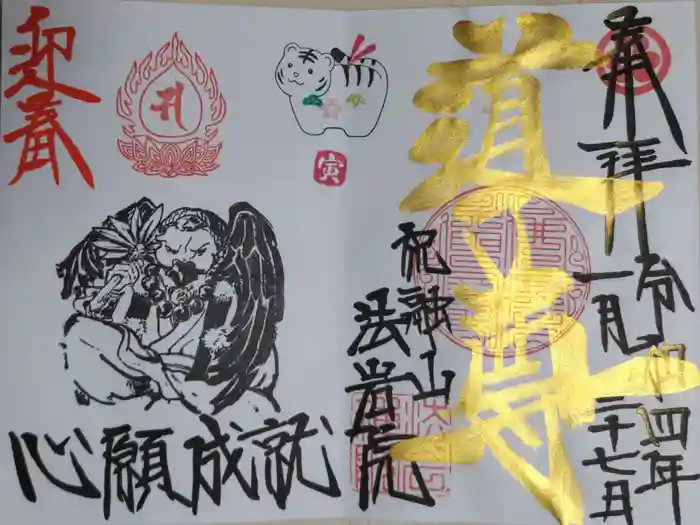 奉拝
令和四年
一月二十七日
道了尊
祝融山
法岩院
迎春
寅
心願成就